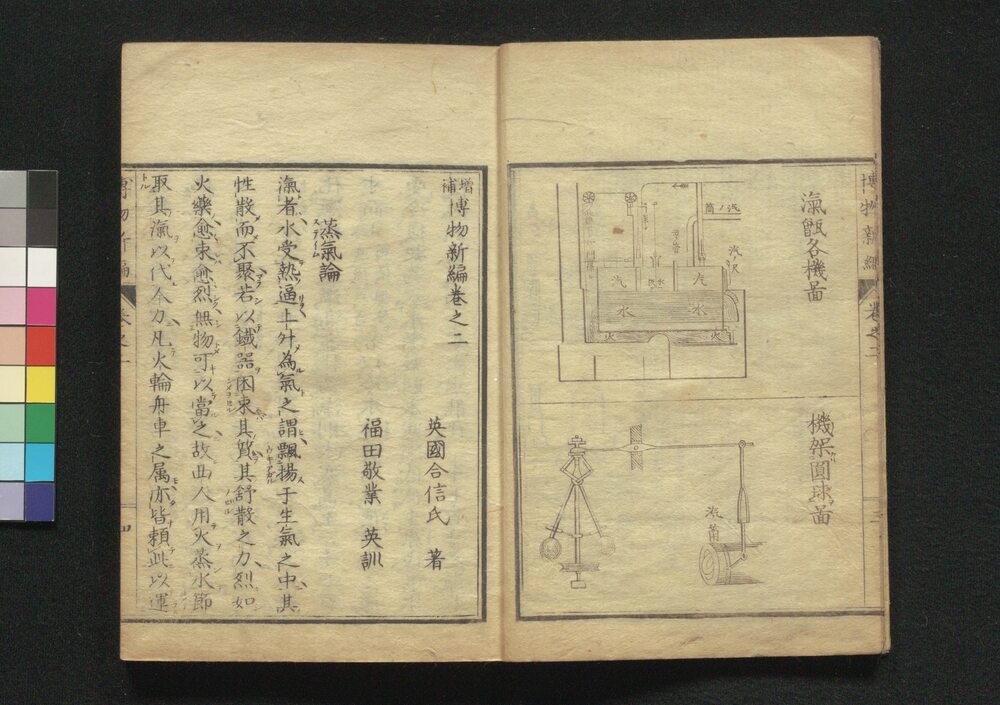 博物新編
卷之二
三
滊甑各機啚
汽ノ筒
汽ノ尺
汽
汽
水
水
火
火
機架圓球啚
滊筩
增補博物新編卷之二
英國合信氏 著
福田敬業 英訓
蒸氣論
スチイム
滊者水受熱逼上升為氣之謂飄揚于生氣之中其
性散而不聚若以鐵器困束其質其舒散之力烈如
火藥愈束愈烈無物可以當之故西人用火蒸水節
取其滊以代人力凡火輪舟車之属亦皆頼此以運
博物新編
卷之二
四